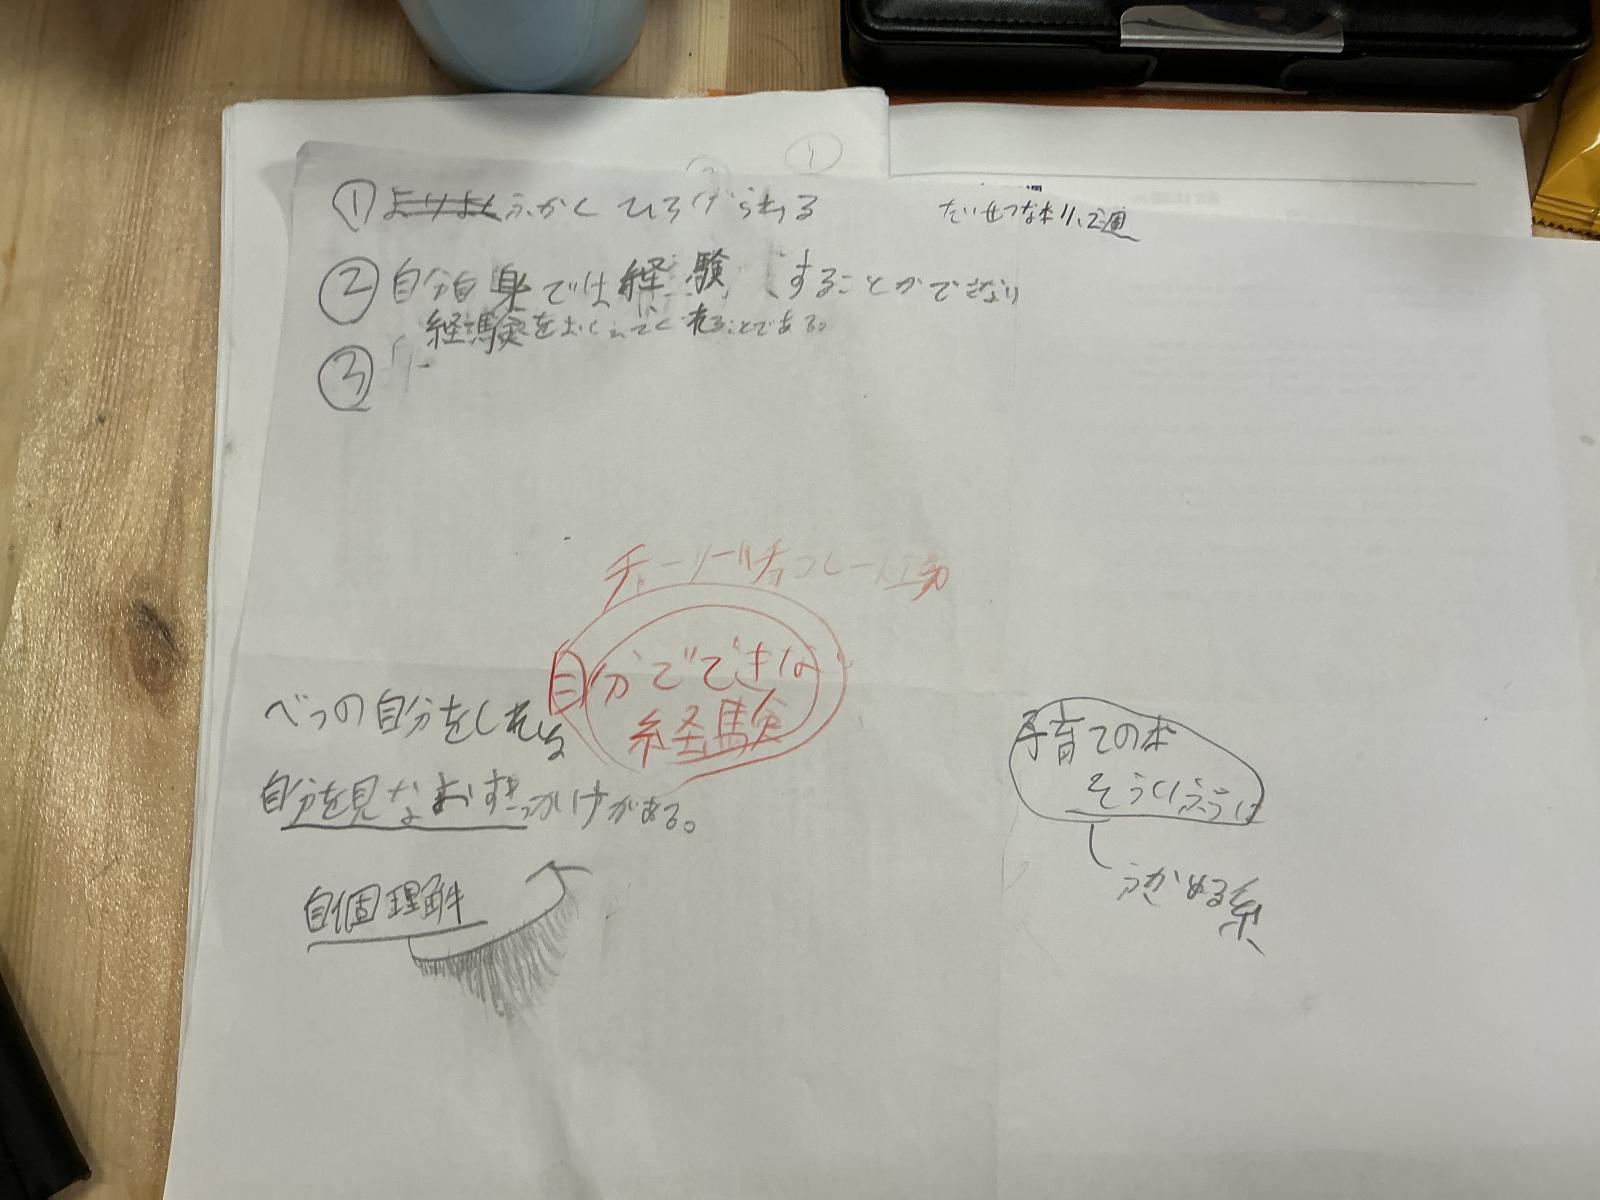 ① よりよくふかくひろげられる
たいせつな本 1、2週
② 自分自身では経験することができない
経験をおしえてくれることである。
③
チャーリーとチョコレート工場
自分でできない
経験
べつの自分をしれる
自分を見なおすきっかけがある。
自個理解
子育ての本
そういうふうに
うかめる系